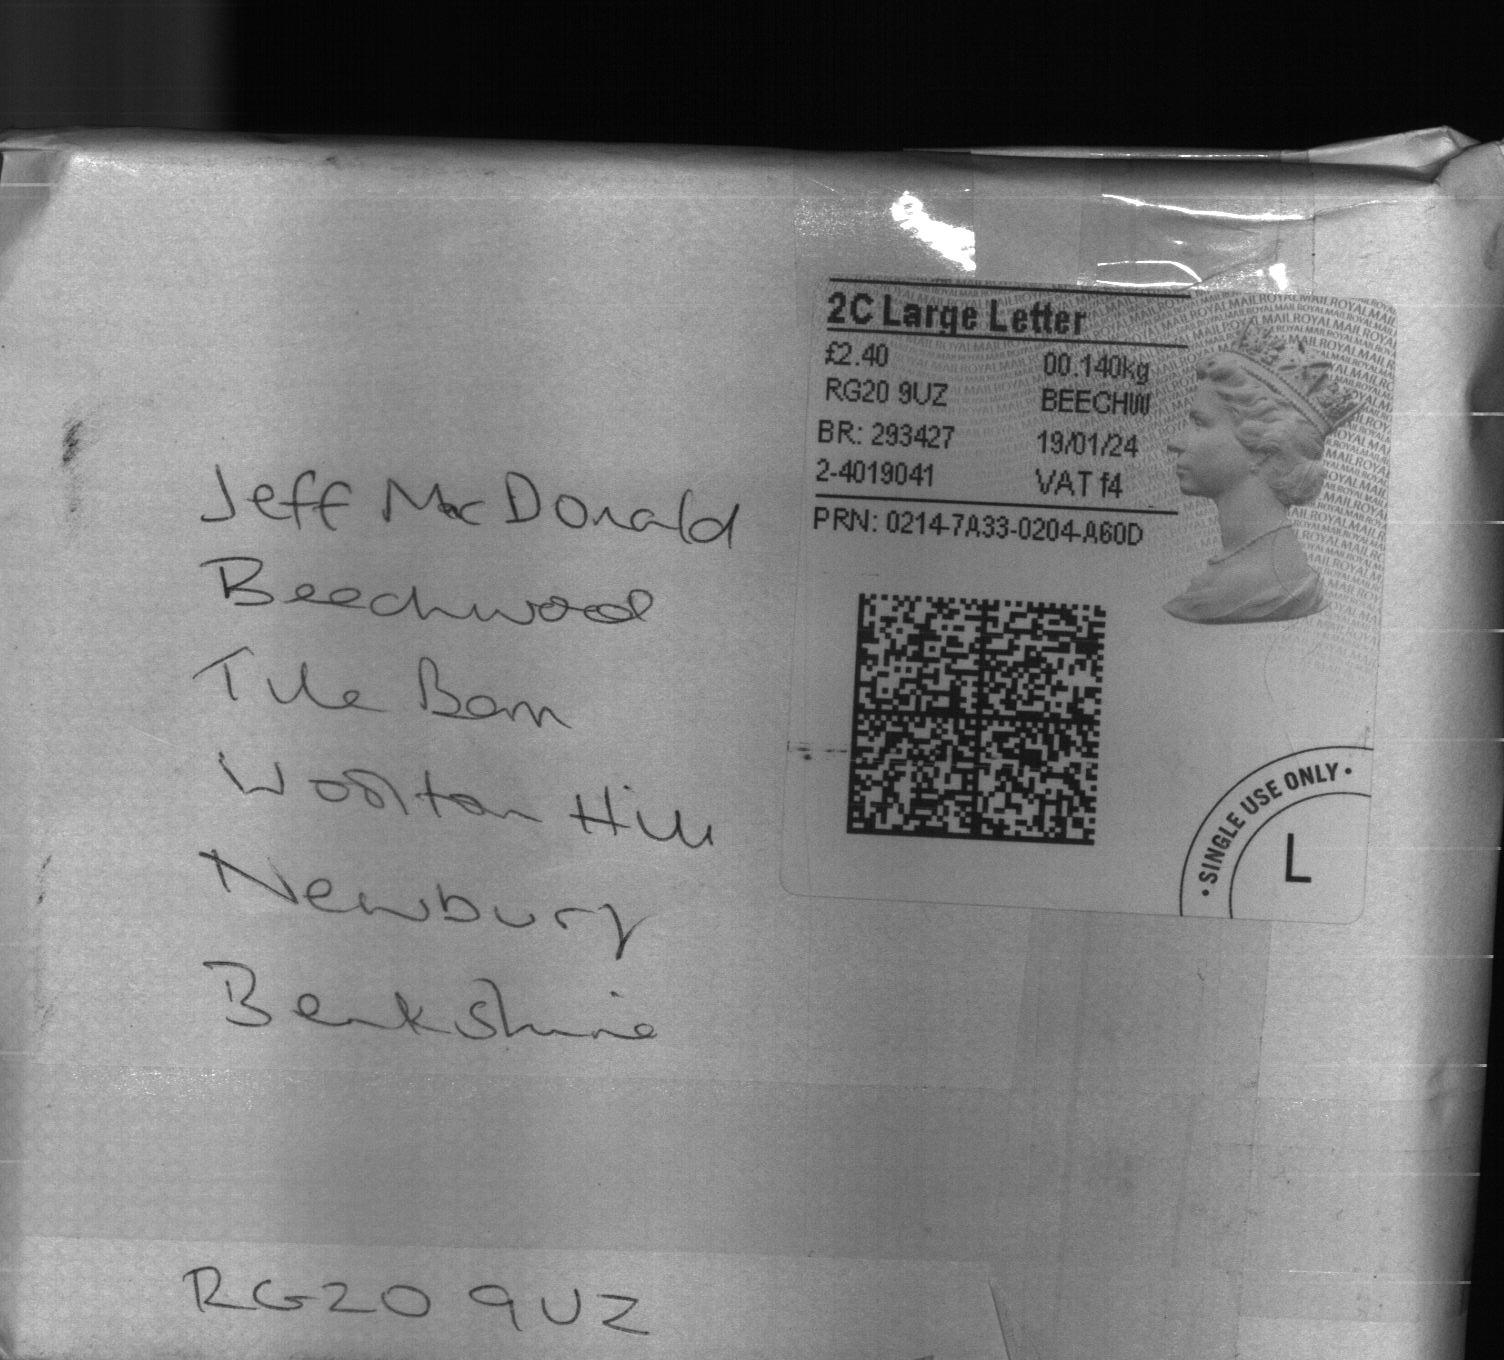 2C Large Letter
£2.40 00.140kg
RG20 9UZ BEECHW
BR: 293427 19/01/24
2-4019041 VAT f4
PRN: 0214-7A33-0204-A60D
• SINGLE USE ONLY •
L
Jeff McDonald
Beechwood
Tile Barn
Woolton Hill
Newbury
Berkshire
RG20 9UZ